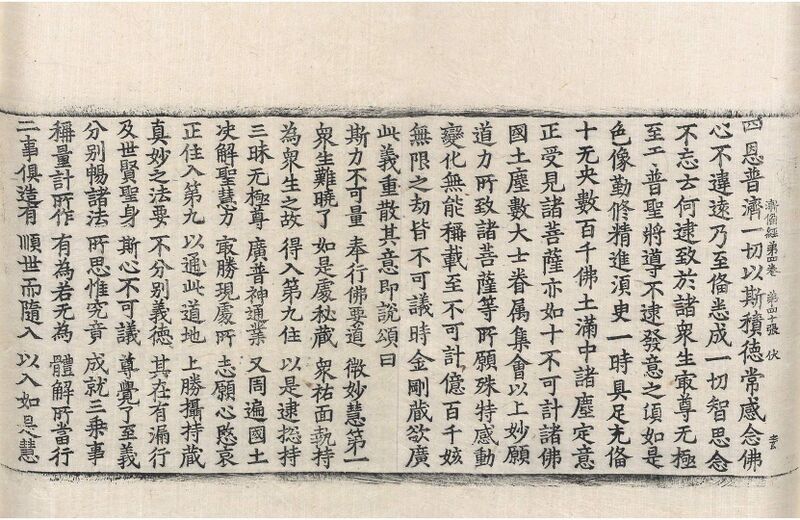 四恩普濟一切以斯積德常感念佛
漸備經第四卷 第四十張 伏
心不違遠乃至俻悉成一切智思念
不忘士何逮致於諸衆生㝡尊无極
至工普聖將導不逮發意之須如是
色像勤修精進湏臾一時具足充俻
十无央數百千佛土滿中諸塵定意
正受見諸菩薩亦如十不可計諸佛
國土塵數大士眷属集會以上妙願
道力所致諸菩薩等所願殊特感動
變化無能稱載至不可計億百千姟
無限之劫皆不可議時金剛蔵欲廣
此義重散其意即說頌曰
斯力不可量 奉行佛要道 微妙慧第一
衆生難曉了 如是處秘蔵 衆祐面執持
為衆生之故 得入第九住 以是逮揔持
三昧无極尊 廣普神通業 又周遍國土
决解聖慧方 㝡勝現處所 志願心愍哀
正住入第九 以通此道地 上勝攝持蔵
真妙之法要 不分别義德 其在有漏行
及世賢聖身 斯心不可議 尊覺了至義
分别暢諸法 所思惟究竟 成就三乗事
稱量計所作 有為若无為 體解所當行
二事俱造有 順世而隨入 以入如是慧